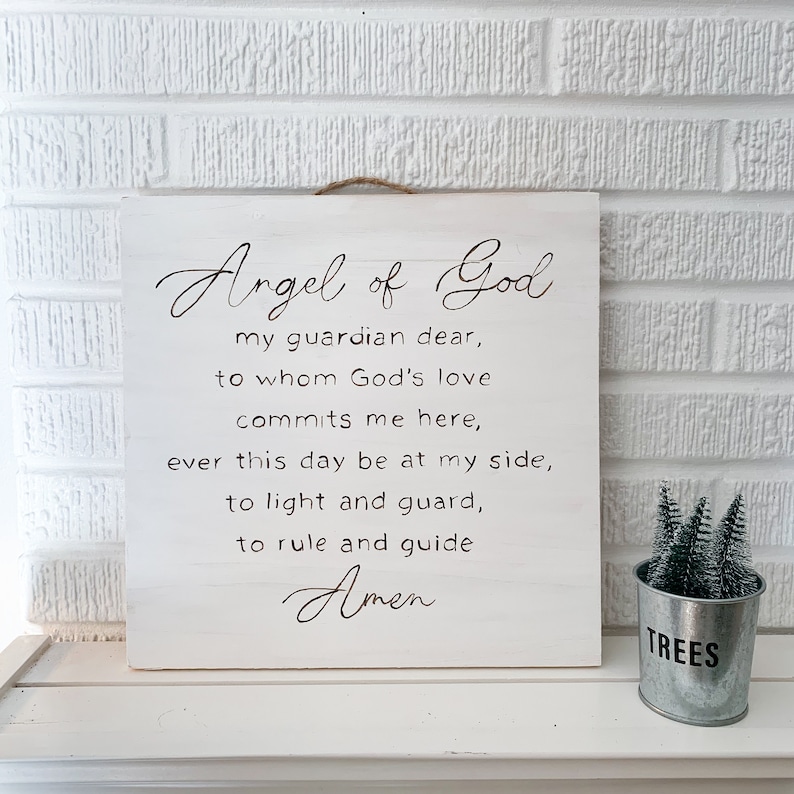 Angel of God
my guardian dear,
to whom God's love
commits me here,
ever this day be at my side,
to light and guard,
to rule and guide
Amen
TREES